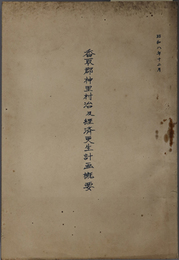 昭和八年十二月
香取郡神里村治及経済更生計画概要